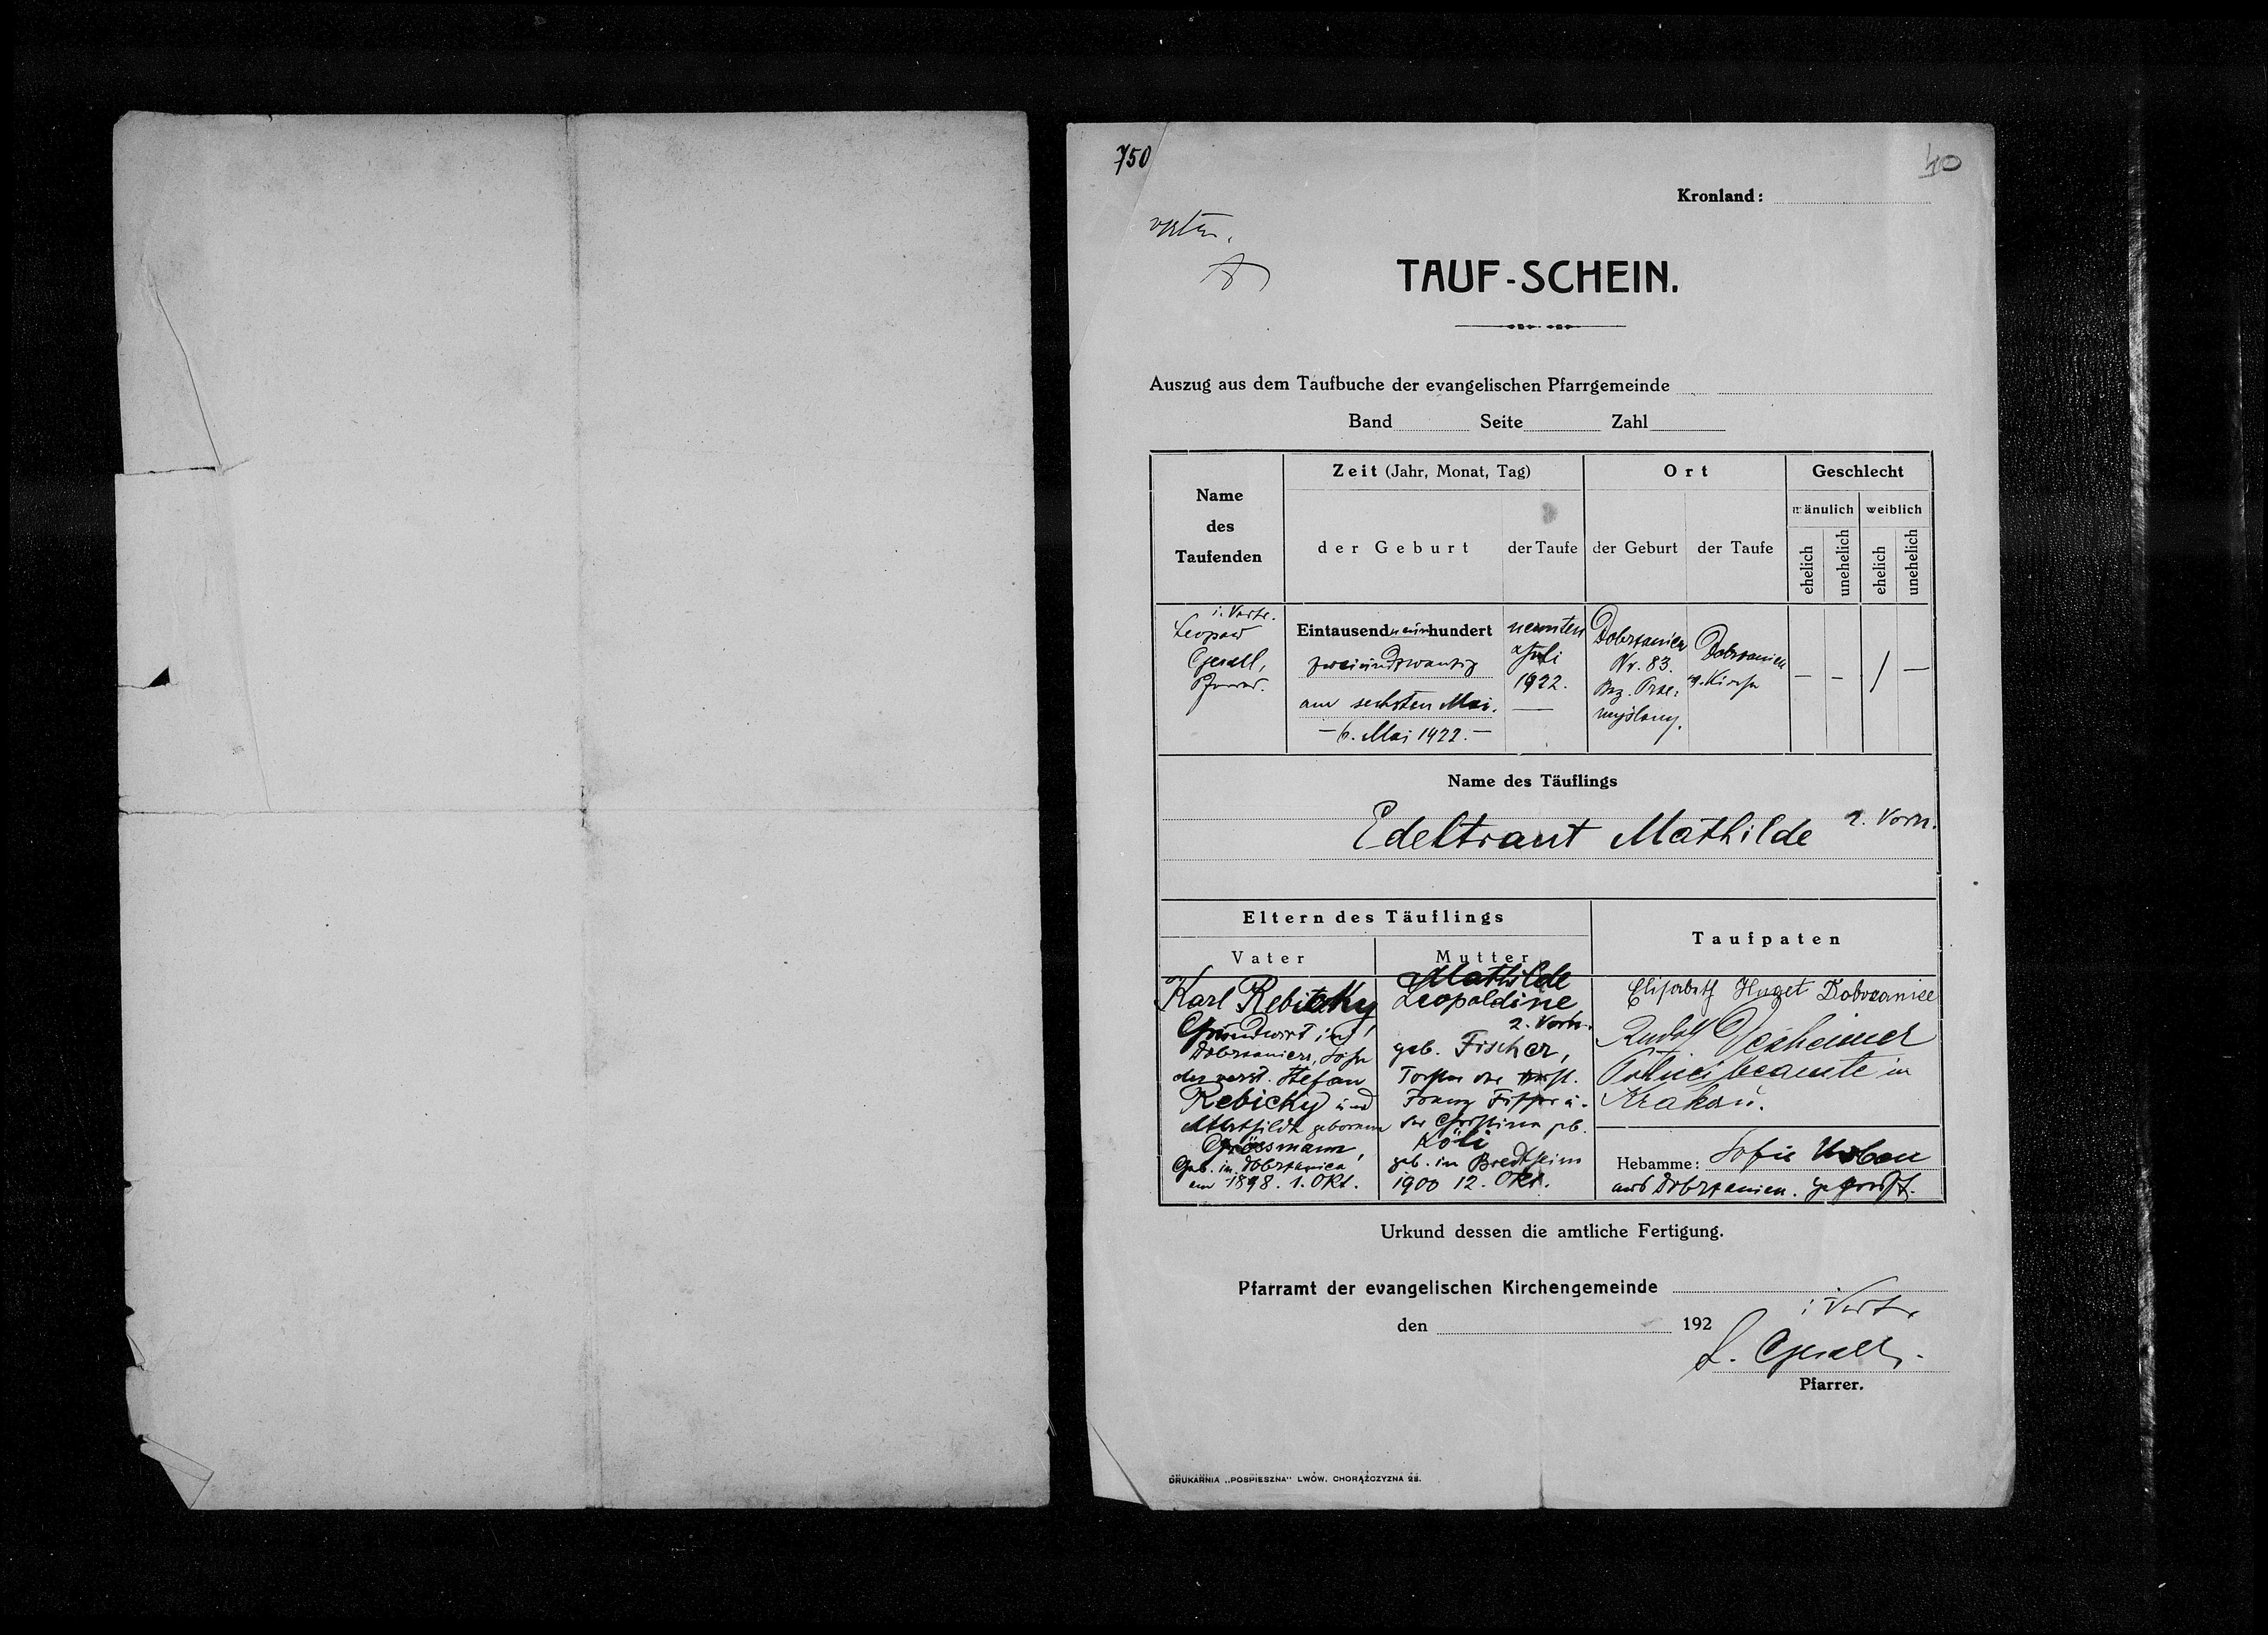 750
40
Kronland:
TAUF-SCHEIN.
Auszug aus dem Taufbuche der evangelischen Pfarrgemeinde
Band Seite Zahl
Name des Taufenden
Zeit (Jahr, Monat, Tag)
Ort
Geschlecht
mänulich weiblich
der Geburt der Taufe der Geburt der Taufe
ehelich unehelich ehelich unehelich
i. Vertr.
Leopold
Gesell,
Pfarrer.
Eintausendneunhundert
zweiundzwanzig
am sechsten Mai.
— 6. Mai 1922. —
neunten
Juli
1922.
—
Dobrzanica
Nr. 83.
Bez. Prze-
myślany.
Dobrzanica
Kirche
— — / —
Name des Täuflings
Edeltraut Mathilde 2. Vorn.
Eltern des Täuflings
Taufpaten
Vater Mutter
Karl Rebicky
Grundwirt in
Dobrzanica, Sohn
des verst. Stefan
Rebicky und
Mathilde geborenen
Grössmann,
Geb. in Dobrzanica
am 1898. 1. Okt.
Mathilde
Leopoldine
2. Vorn.
geb. Fischer,
Tochter des
Franz Fischer u.
der Christina geb.
Köli
geb. in Bredtheim
1900 12. Okt.
Elisabeth Huget Dobrzanica
Rudolf
Polizeibeamte in
Krakau.
Hebamme: Sofie Urban
aus Dobrzanica. geprüft.
Urkund dessen die amtliche Fertigung.
Pfarramt der evangelischen Kirchengemeinde
i. Vertr.
den 192
L. Gesell.
Pfarrer.
DRUKARNIA „POSPIESZNA" LWÓW, CHORĄŻCZYZNA 28.